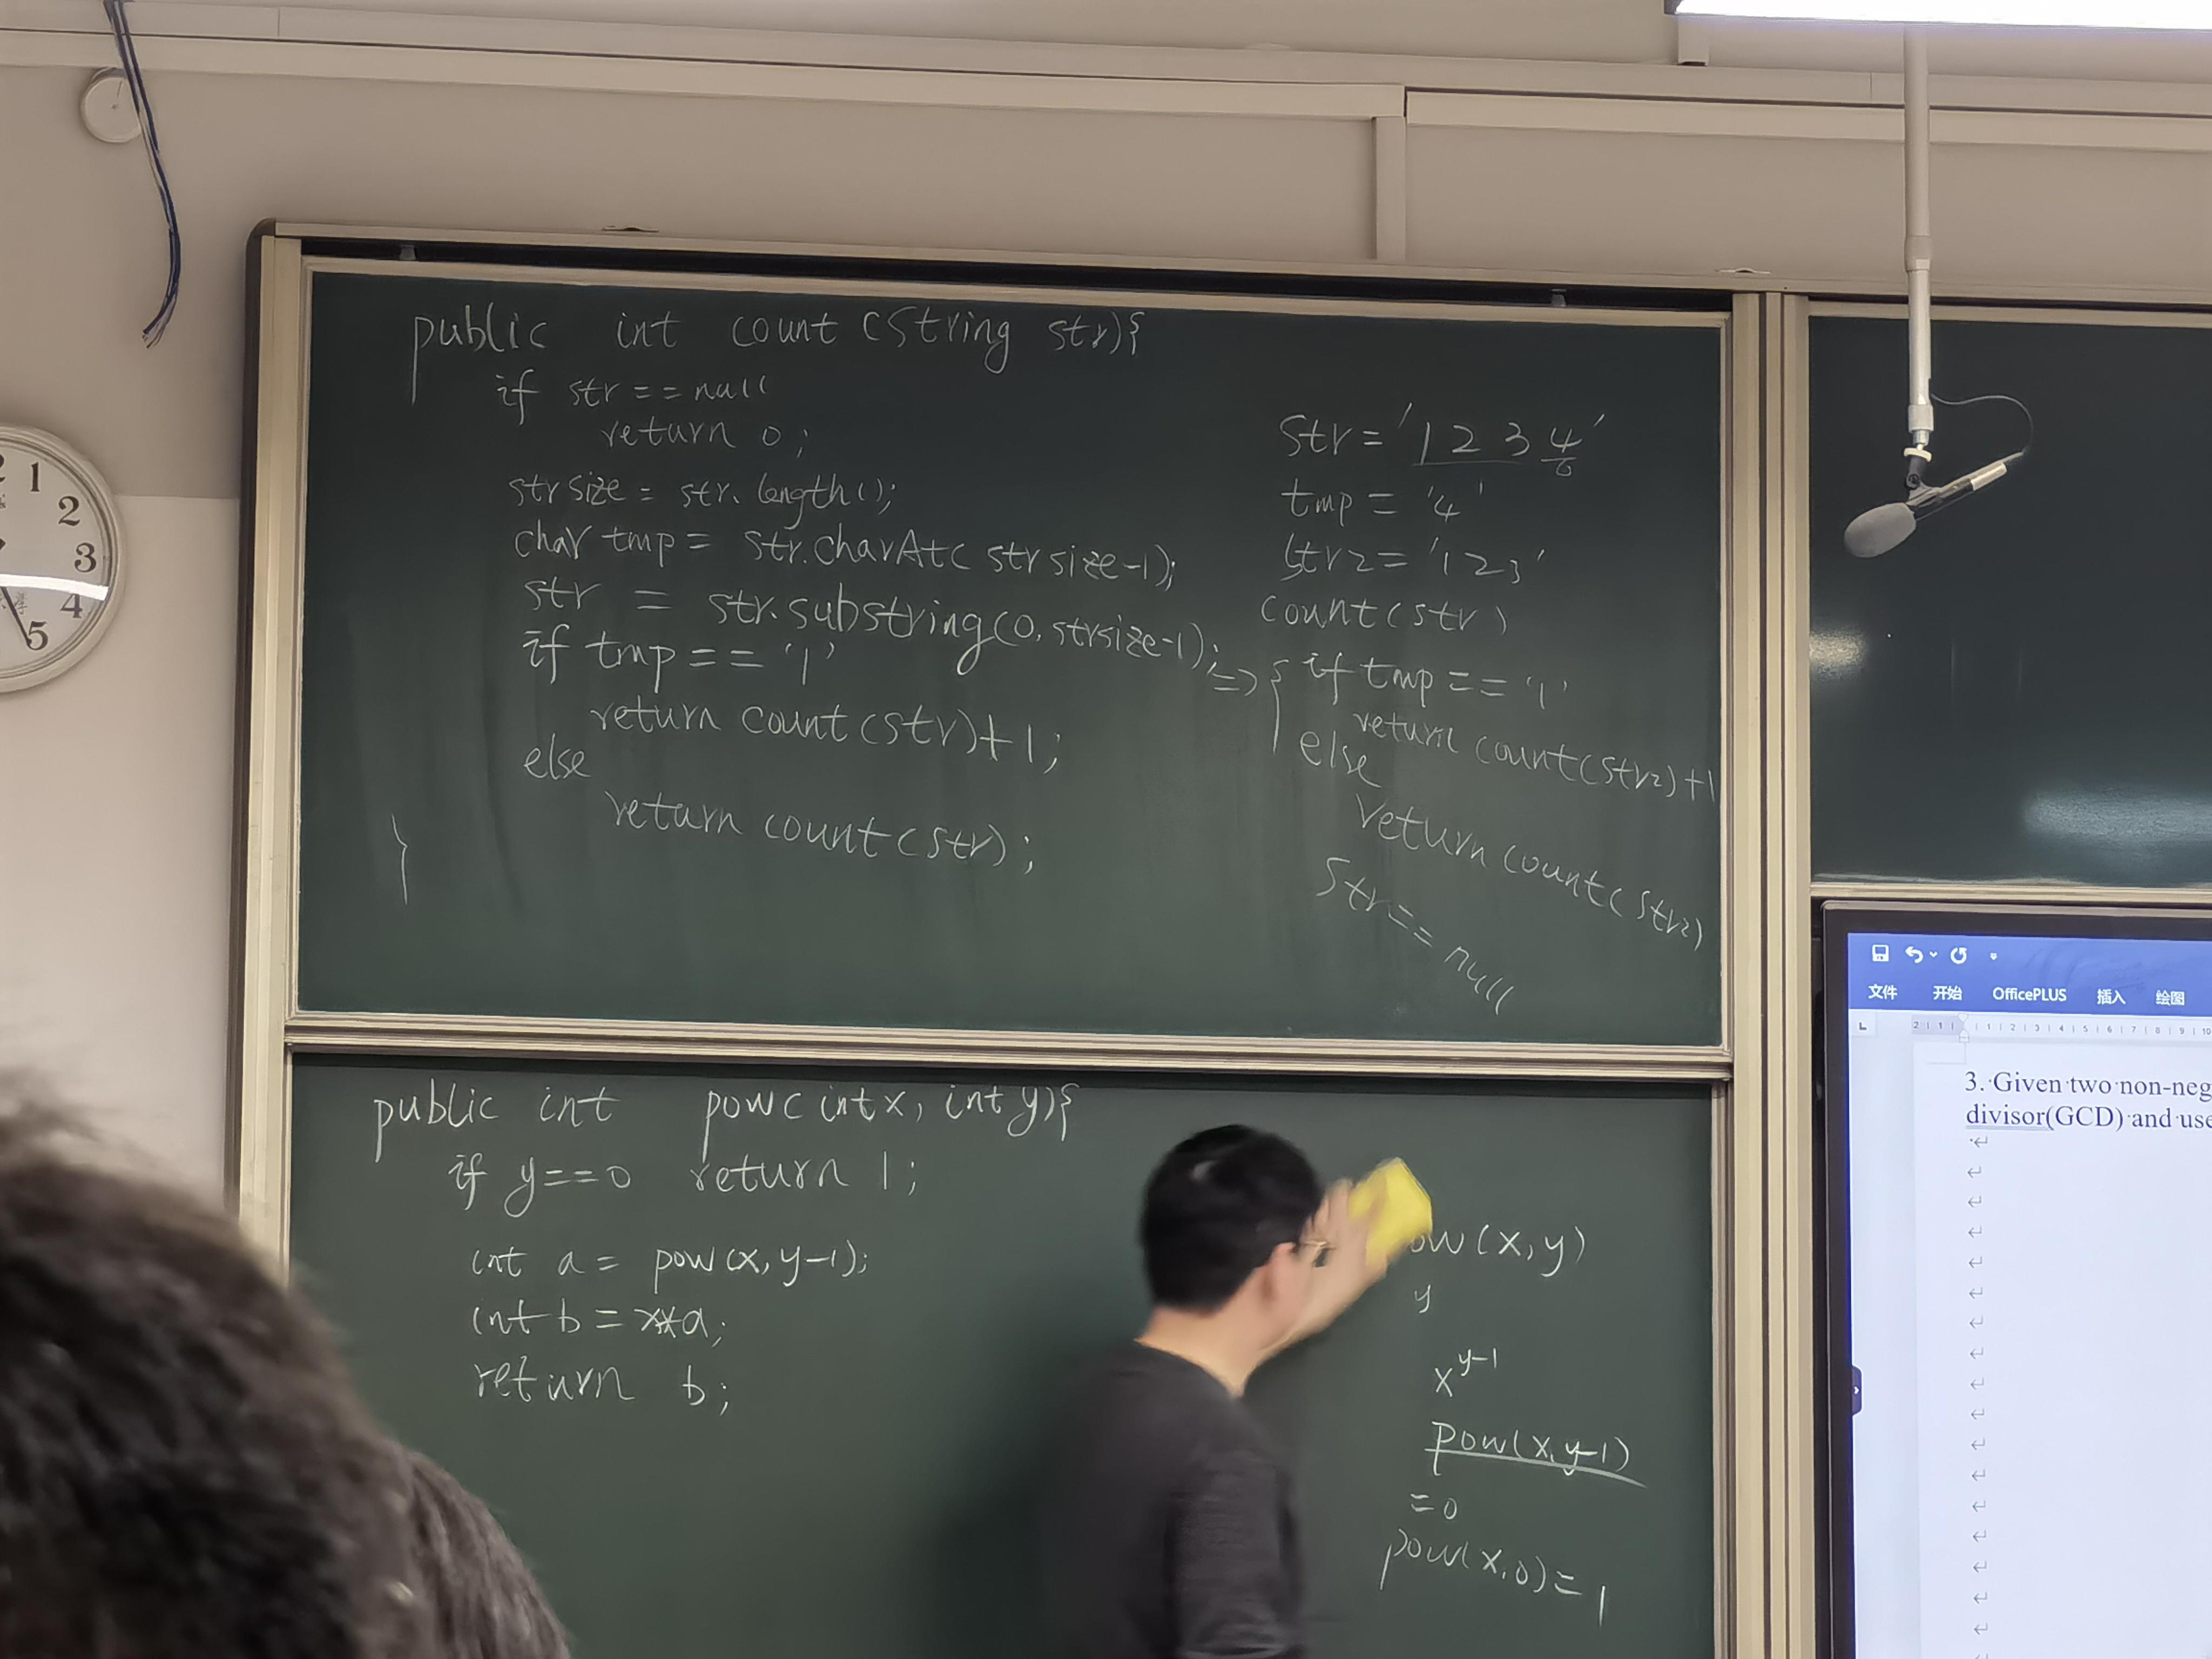 public int count (String str){
if str == null
return 0;
strsize = str.length();
char tmp = str.charAt( strsize-1);
str = str.substring(0, strsize-1);
if tmp == '1'
return count(str)+1;
else
return count(str);
}
str = '1 2 3 4'
tmp = '4'
str2 = '123'
count(str)
=> { if tmp == '1'
return count(str2)+1
else
return count(str2)
str == null
public int pow( int x, int y){
if y==0 return 1;
int a = pow(x, y-1);
int b = x*a;
return b;
ow(x,y)
y
x^{y-1}
pow(x,y-1)
=0
pow(x,0)=1
1
2
3
4
5
文件 开始 OfficePLUS 插入 绘图
2 1 1 1 2 3 4 5 6 7 8 9 10
3. Given two non-neg
divisor(GCD) and use